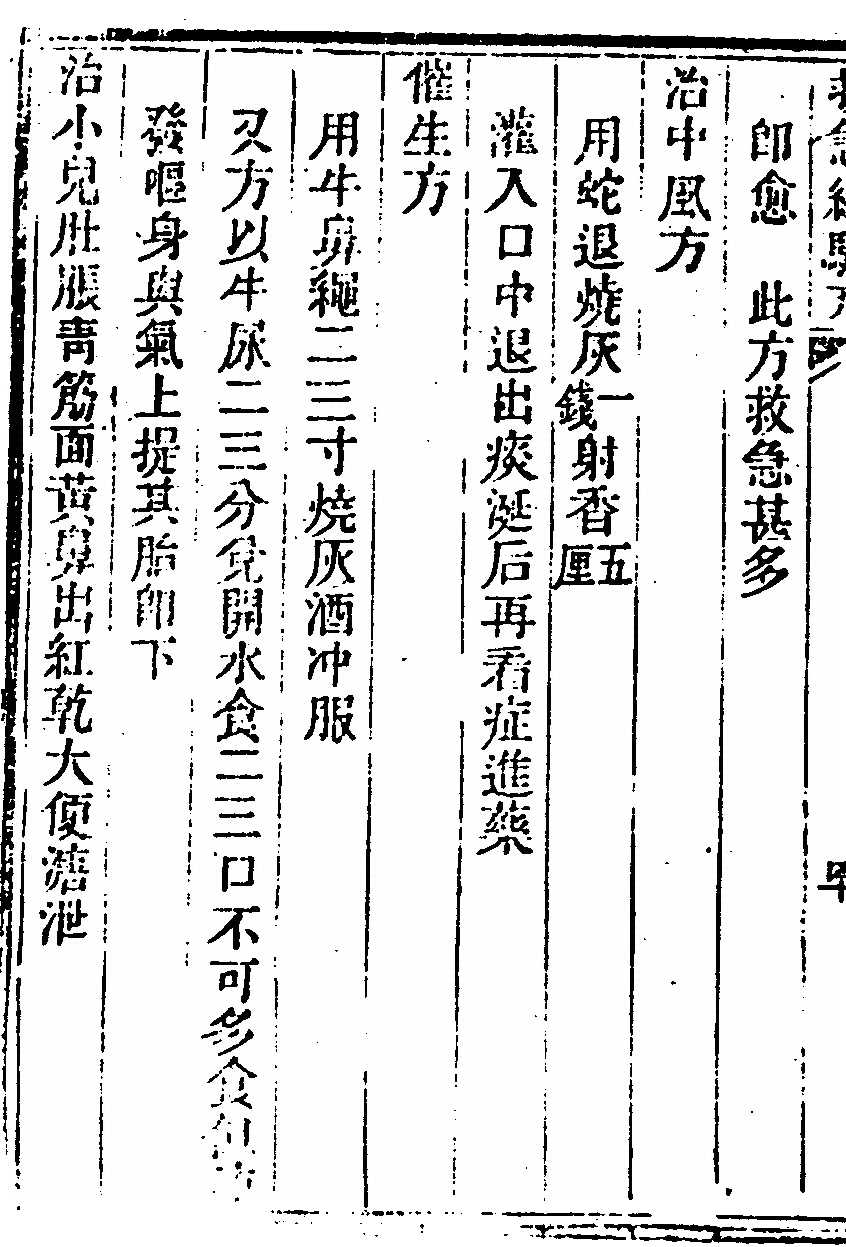 救急經驗方
即愈　此方救急甚多
治中風方
用蛇退燒灰一錢射香五厘
灌入口中退出痰涎后再看症進藥
催生方
用牛鼻繩二三寸燒灰酒冲服
又方以牛尿二三分兌開水食二三口不可多食
發嘔身與氣上提其胎即下
治小兒肚脹青筋面黃鼻出紅乾大便溏泄